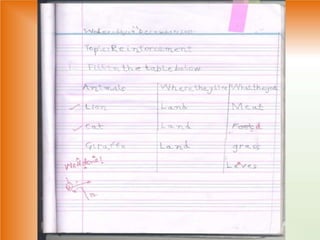 Topic: Reinforcement
Fill in the table below
Animals Where they live What they eat
Lion Land Meat
Cat Land Food
Giraffe Land grass
Leves
Well done!